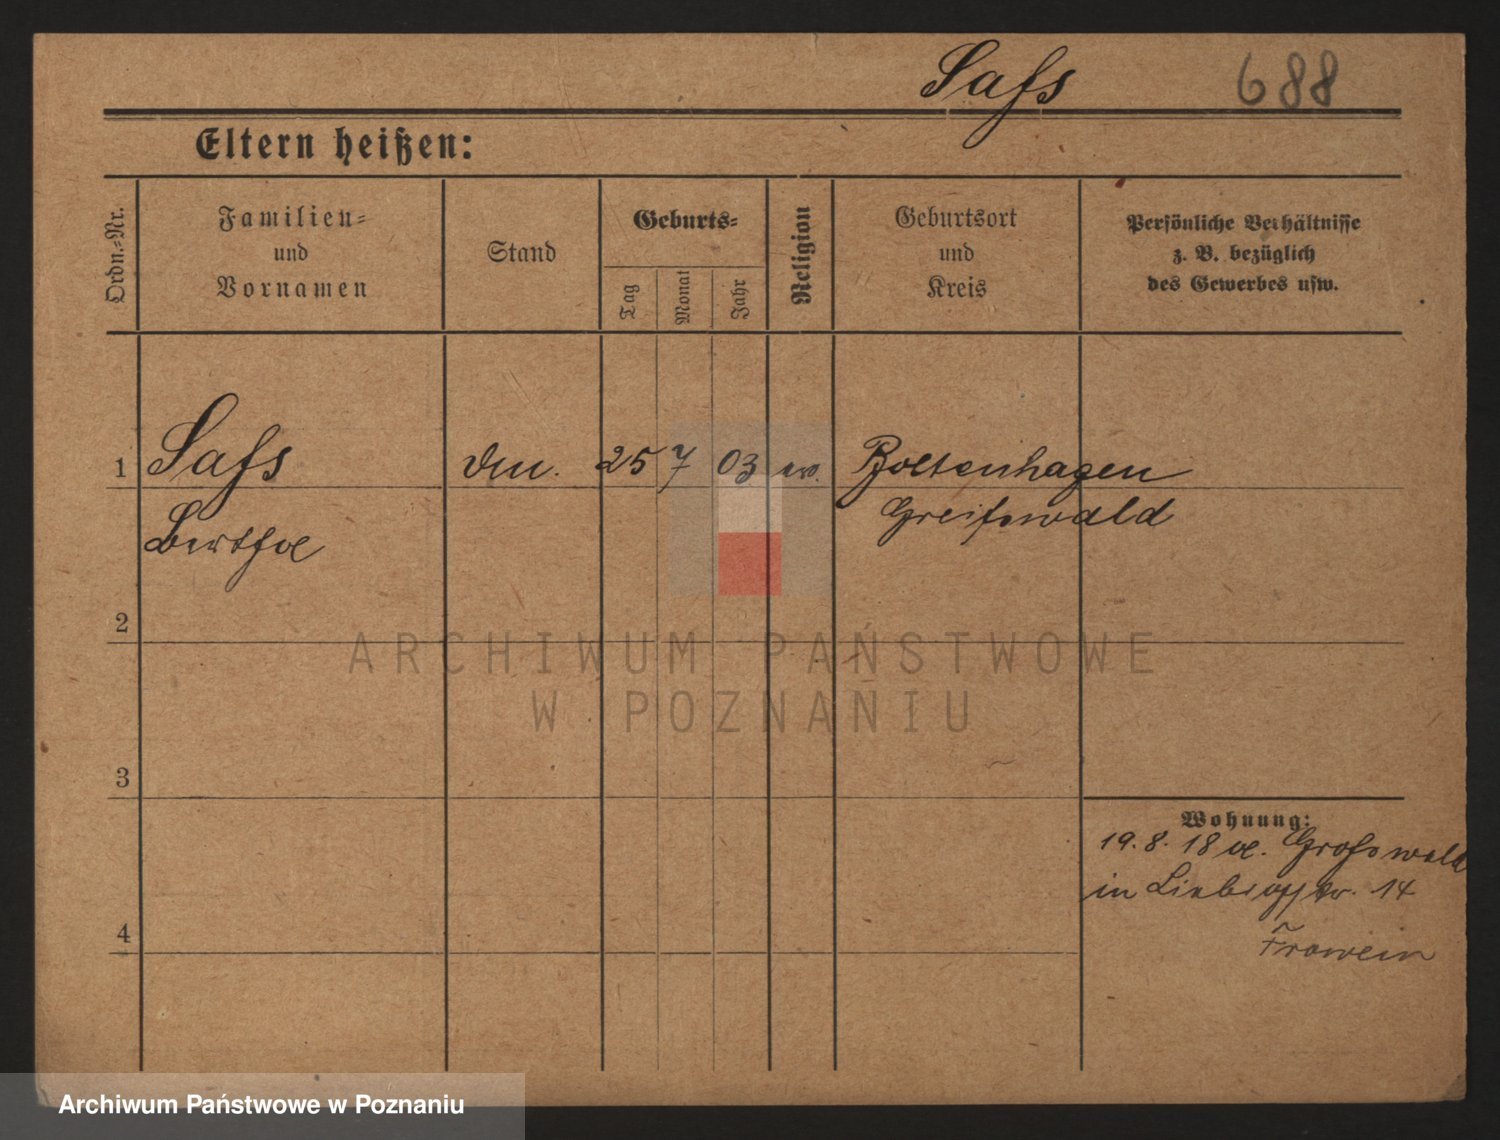 Safs
688
Eltern heißen:
Ordn.-Nr.
Familien-
und
Vornamen
Stand
Geburts-
Tag
Monat
Jahr
Religion
Geburtsort
und
Kreis
Persönliche Verhältnisse
z. B. bezüglich
des Gewerbes usw.
1 Safs 25 7 03 ev. Boltenhagen
Greifswald
2
3
4
Wohnung:
19. 8. 18
in 14
Frowein
ARCHIWUM PAŃSTWOWE
W POZNANIU
Archiwum Państwowe w Poznaniu